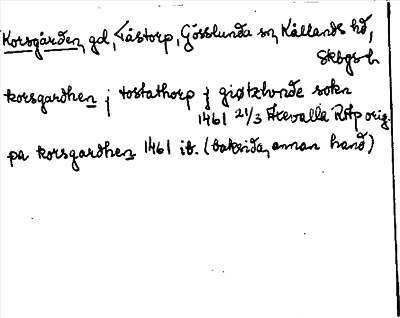 Korsgården, gd, Tåstorp, Gösslunda sn, Kållands hd,
Skbgs l.
korsgardhen j tostathorp j giøtzlunde sokn
1461 21/3 Skevalla RAp orig.
pa korsgardhen 1461 ib. (baksida, annan hand)